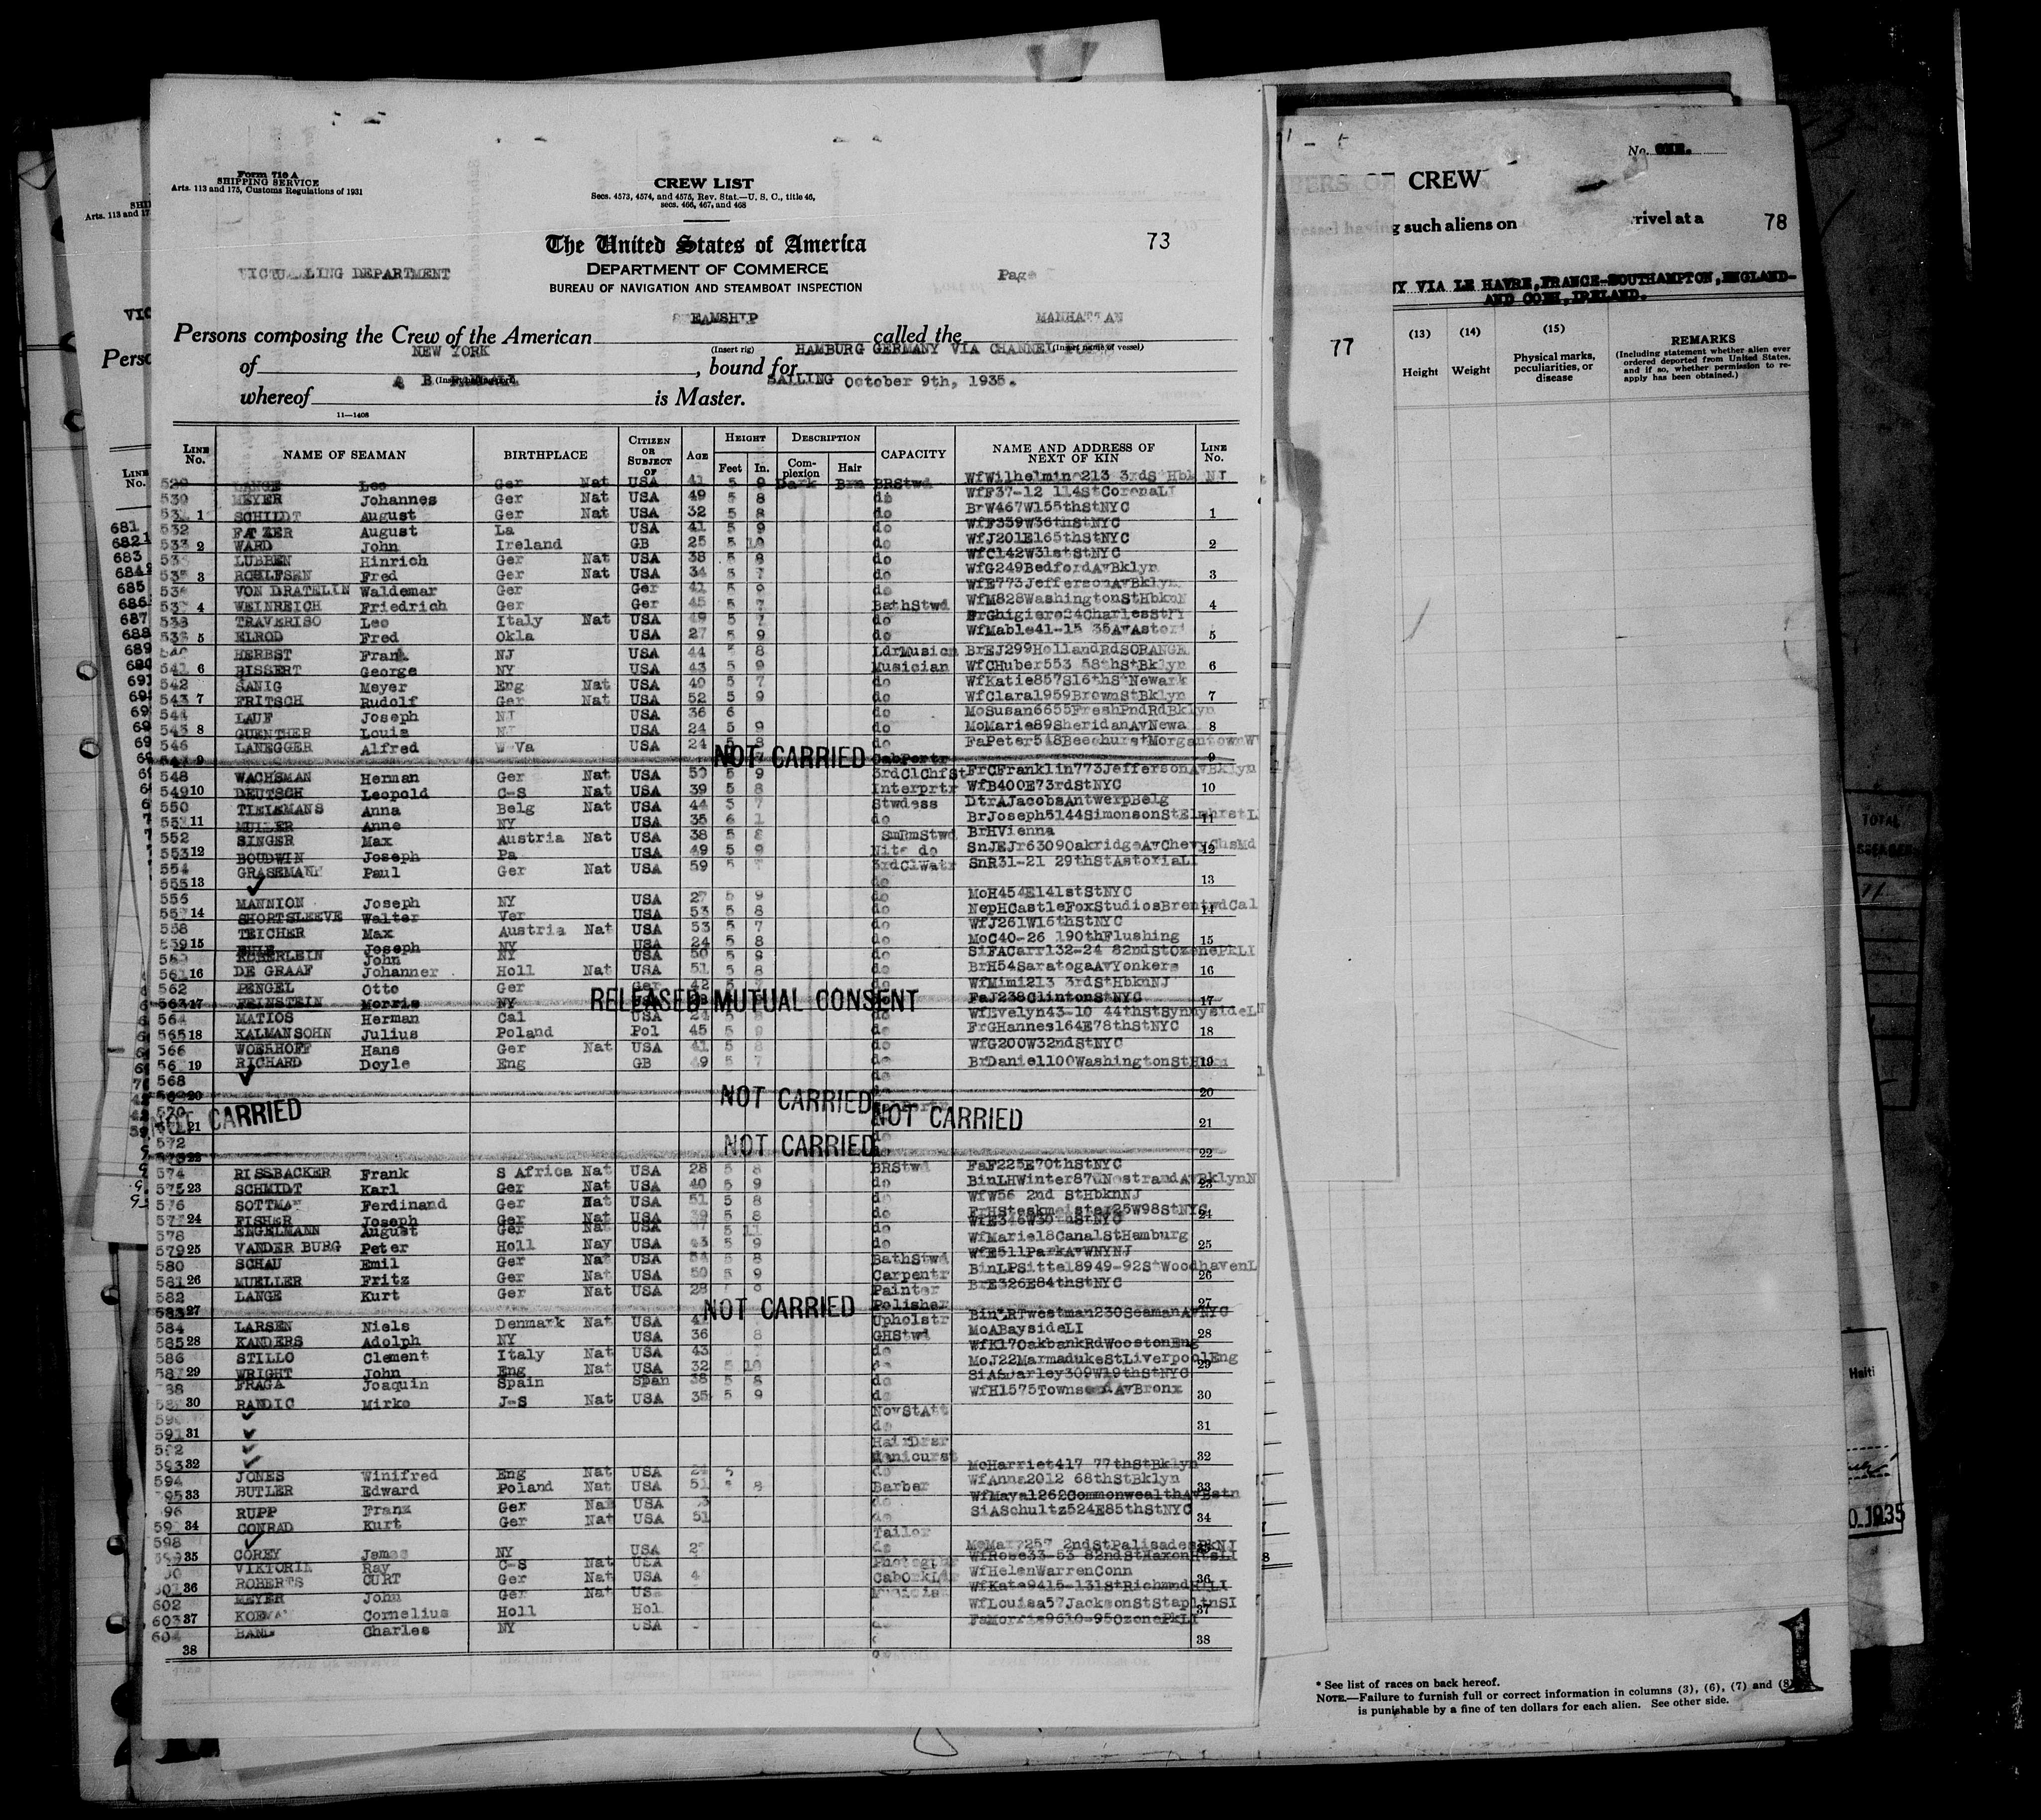 Form 710 A
SHIPPING SERVICE
Arts. 113 and 175, Customs Regulations of 1931
CREW LIST
Secs. 4573, 4574, and 4575, Rev. Stat.—U. S. C., title 46,
secs. 466, 467, and 468
The United States of America
73
DEPARTMENT OF COMMERCE
BUREAU OF NAVIGATION AND STEAMBOAT INSPECTION
DEPARTMENT
Page
Persons composing the Crew of the American STEAMSHIP called the MANHATTAN
(Insert rig) (Insert name of vessel)
of NEW YORK, bound for HAMBURG GERMANY VIA CHANNEL
SAILING October 9th, 1935.
whereof A B is Master.
11—1408
LINE No. NAME OF SEAMAN BIRTHPLACE CITIZEN OR SUBJECT OF AGE HEIGHT Feet In. DESCRIPTION Complexion Hair CAPACITY NAME AND ADDRESS OF NEXT OF KIN LINE No.
LANGE Leo Ger Nat USA 41 5 9 Dark Brn BRStwd
530 MEYER Johannes Ger Nat USA 49 5 8 do WfF37-12 114StCoronaLI
1 SCHILDT August Ger Nat USA 32 5 8 do BrW467W155thStNYC 1
532 FATZER August La USA 41 5 9 do WfF339W36thStNYC
533 2 WARD John Ireland GB 25 5 10 do WfJ201E165thStNYC 2
LUBBEN Hinrich Ger Nat USA 38 5 8 do WfC142W31stStNYC
3 ROHLFSEN Fred Ger Nat USA 34 5 7 do WfG249BedfordAvBklyn 3
VON DRATELIN Waldemar Ger Ger 41 5 9 do WfE773JeffersonAvBklyn
4 WEINREICH Friedrich Ger Ger 45 5 7 BathStwd WfM828WashingtonStHbkn 4
538 TRAVERISO Leo Italy Nat USA 49 5 7 do
5 ELROD Fred Okla USA 27 5 9 do WfMable41-15 35AvAstori 5
HERBST Frank NJ USA 44 8 LdrMusicn BrEJ299HollandRdSORANGE
541 6 BISSERT George NY USA 43 5 9 Musician WfCHuber553 58thStBklyn 6
542 SANIG Meyer Eng Nat USA 40 5 7 do WfKatie857S16thStNewark
543 7 FRITSCH Rudolf Ger Nat USA 52 5 9 do WfClara1959BrownStBklyn 7
544 LAUF Joseph NJ USA 36 6 do MoSusan6655FreshPndRdBklyn
8 GUENTHER Louis USA 24 5 9 do MoMarie89SheridanAvNewa 8
546 LANEGGER Alfred W Va USA 24 5 8 do FaPeter548BeechurstMorgantownW
9 NOT CARRIED CabPortr 9
548 WACHSMAN Herman Ger Nat USA 50 5 9 3rdClChfSt FrCFranklin773JeffersonAvBklyn
549 10 DEUTSCH Leopold C-S Nat USA 39 5 8 Interprtr WfB400E73rdStNYC 10
550 TIELEMANS Anna Belg Nat USA 44 5 7 Stwdess DtrAJacobsAntwerpBelg
11 MULLER Anne NY USA 35 6 1 do BrJoseph5144SimonsonStElmhrstL 11
552 SINGER Max Austria Nat USA 38 5 8 SmRmStwd BrHVienna
553 12 BOUDWIN Joseph Pa USA 49 5 9 Nite do SnJEJr6309OakridgeAvChevyChsMd 12
554 GRASEMANN Paul Ger Nat USA 59 5 3rdClWatr SnR31-21 29thStAstoriaLI
555 13 ✓ do 13
MANNION Joseph NY USA 27 5 9 do MoH454E141stStNYC
14 SHORTSLEEVE Walter Ver USA 53 5 8 do NepHCastleFoxStudiosBrentwdCal 14
558 TEICHER Max Austria Nat USA 53 5 7 do WfJ261W16thStNYC
559 15 Joseph NY USA 24 5 8 do MoC40-26 190thFlushing 15
EBERLEIN John NY USA 50 5 9 do SiFACarr132-24 82ndStOzonePkLI
561 16 DE GRAAF Johanner Holl Nat USA 51 5 8 do BrH54SaratogaAvYonkers 16
562 PENGEL Otto Ger Ger 42 do WfMimi213 3rdStHbknNJ
563 17 FEINSTEIN Morris NY RELEASED MUTUAL CONSENT FaJ238ClintonStNYC 17
564 MATIOS Herman Cal USA 24 5 8 do WfEvelyn43-10 44thStSynnysideL
565 18 KALMANSOHN Julius Poland Pol 45 5 9 do FrGHannes164E78thStNYC 18
566 WOERHOFF Hans Ger Nat USA 41 5 8 do WfG200W32ndStNYC
19 RICHARD Doyle Eng GB 49 5 7 do BrDaniel100WashingtonStH 19
568 ✓ do
20 NOT CARRIED 20
NOT CARRIED NOT CARRIED
21 21
572 NOT CARRIED
22 22
574 RISSBACKER Frank S Africa Nat USA 28 5 8 BRStwd FaF225E70thStNYC
575 23 SCHMIDT Karl Ger Nat USA 40 5 9 do BinLHWinter87WNostrandAvBklynN 23
576 SOTTMAN Ferdinand Ger Nat USA 51 5 8 do WfW56 2nd StHbknNJ
24 FISHER Joseph Ger Nat USA 39 5 8 do FrHSteskmeister25W98StNYC 24
578 ENGELMANN August Ger Nat USA 5 11 do WfE346W30thStNYC
579 25 VANDER BURG Peter Holl Nay USA 43 5 9 do WfMarie18CanalStHamburg 25
580 SCHAU Emil Ger Nat USA 54 5 8 BathStwd WfE511ParkAvWNYNJ
581 26 MUELLER Fritz Ger Nat USA 50 5 9 Carpentr BinLPSittel8949-92StWoodhavenL 26
582 LANGE Kurt Ger Nat USA 28 Painter BrE326E84thStNYC
583 27 NOT CARRIED Polisher 27
584 LARSEN Niels Denmark Nat USA 41 Upholstr BinRTwestman230SeamanAvNYC
585 28 KANDERS Adolph NY USA 36 8 GHStwd MoABaysideLI 28
586 STILLO Clement Italy Nat USA 43 do WfK17OakbankRdWoostonEng
587 29 WRIGHT John Eng Nat USA 32 5 10 do MoJ22MarmadukeStLiverpoolEng 29
FRAGA Joaquin Spain Span 38 5 8 do SiASDarley309W19thStNYC
30 RANDIC Mirko J-S Nat USA 35 5 9 do WfH1575TownsendAvBronx 30
✓ NovStAtt
591 31 ✓ do 31
✓ HairDrsr
32 ✓ Manicurst 32
594 JONES Winifred Eng Nat USA 24 5 do MoHarriet417 77thStBklyn
33 BUTLER Edward Poland Nat USA 51 8 Barber WfAnna2012 68thStBklyn 33
RUPP Franz Ger Nat USA do WfMaya1262CommonwealthAvBstn
34 CONRAD Kurt Ger Nat USA 51 do SiASchultz524E85thStNYC 34
598 ✓ Tailor
35 COREY James NY USA do MoMary257 2ndStPalisadesPkNJ
VIKTORIN Ray C-S Nat USA WfRose33-53 82ndStHaxonHtsLI
36 ROBERTS CURT Ger Nat USA WfHelenWarrenConn 36
602 MEYER John Ger Nat WfKate9415-131StRichmndHlLI
603 37 Cornelius Holl Hol WfLouisa57JacksonStStapltnSI 37
604 BAND Charles NY USA FaMorris9610-95OzonePkLI
38 38
No. ONE.
CREW
such aliens on
rival at a
78
VIA LE HAVRE, FRANCE-SOUTHAMPTON, ENGLAND-
AND COBH, IRELAND.
77
(13) Height (14) Weight (15) Physical marks, peculiarities, or disease
REMARKS
(Including statement whether alien ever
ordered deported from United States,
and if so, whether permission to re-
apply has been obtained.)
TOTAL
Haiti
1935
* See list of races on back hereof.
NOTE.—Failure to furnish full or correct information in columns (3), (6), (7) and (8)
is punishable by a fine of ten dollars for each alien. See other side.
1